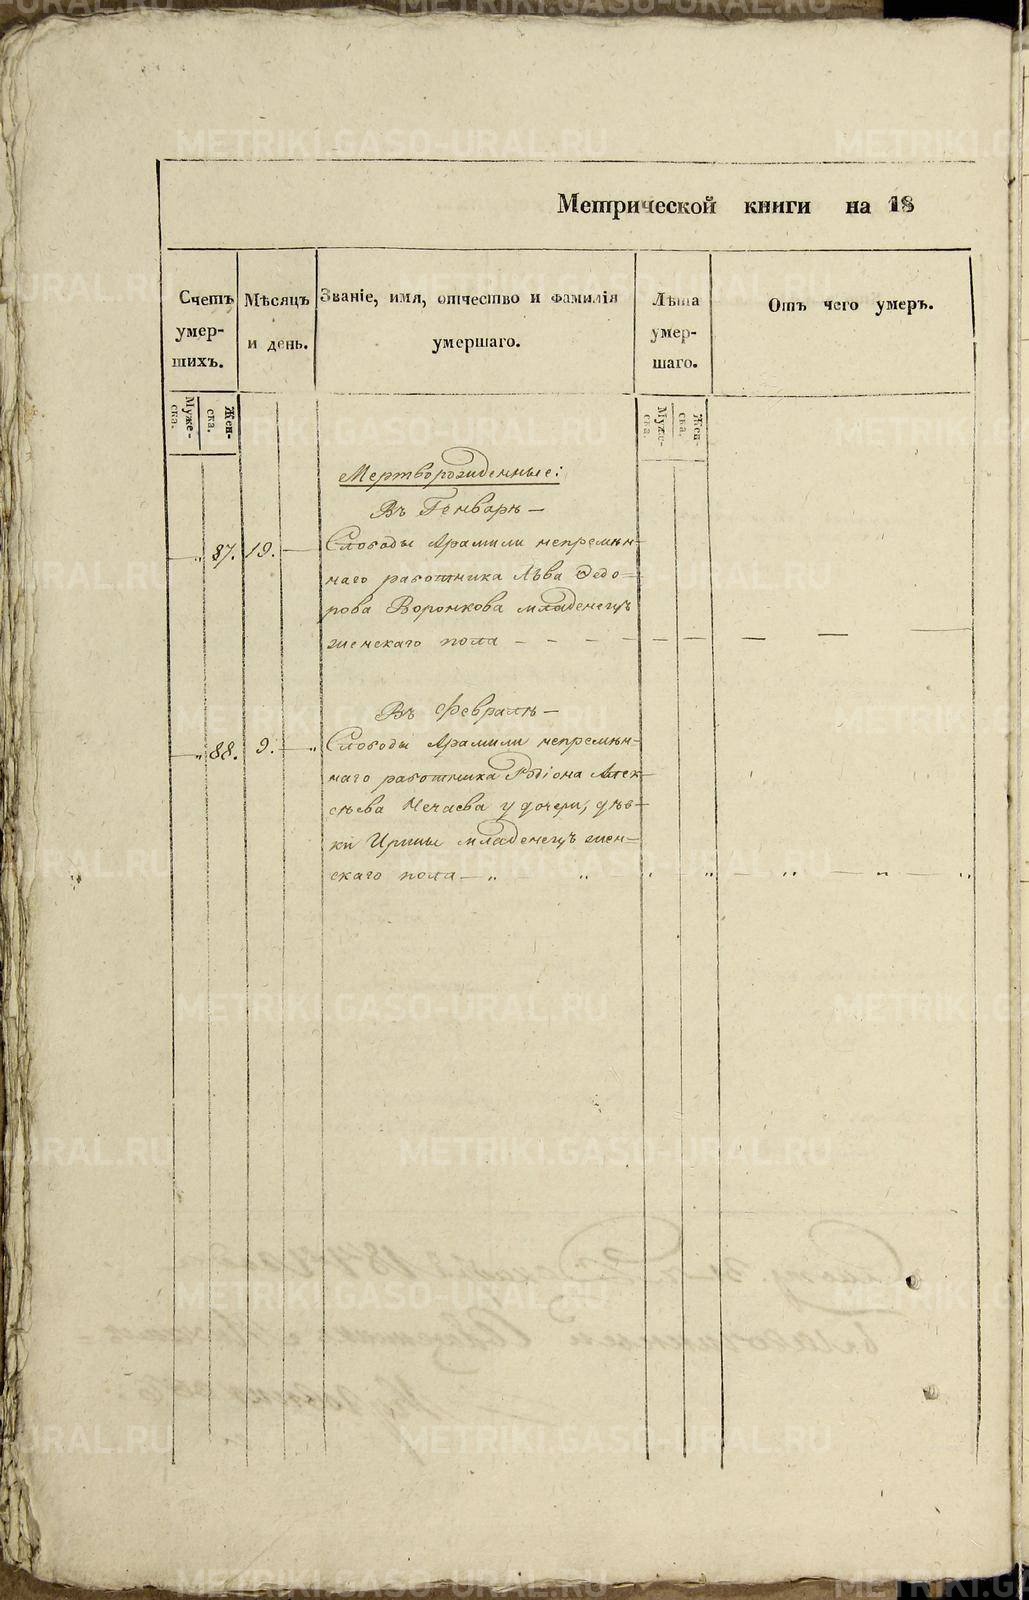 Метрической книги на 18
Счетъ умер-шихъ.
Мѣсяцъ и день.
Званіе, имя, отчество и фамилія умершаго.
Лѣта умер-шаго.
Отъ чего умеръ.
Муже-ска.
Жен-ска.
Муже-ска.
Жен-ска.
Мертворожденные:
Въ Генварѣ —
„ 87. 19. — Слободы Арамили непремѣн-
наго работника Лѣва Ѳедо=
рова Воронкова младенецъ
женскаго пола — — — — — — — —
Въ Февралѣ —
„ 88. 9. — „ Слободы Арамили непремѣн-
наго работника Родіона Алек-
сѣева Нечаева у дочери, дѣв-
ки Ирины младенецъ жен=
скаго пола — „ „ „ „ — „ — „ — „
METRIKI.GASO-URAL.RU